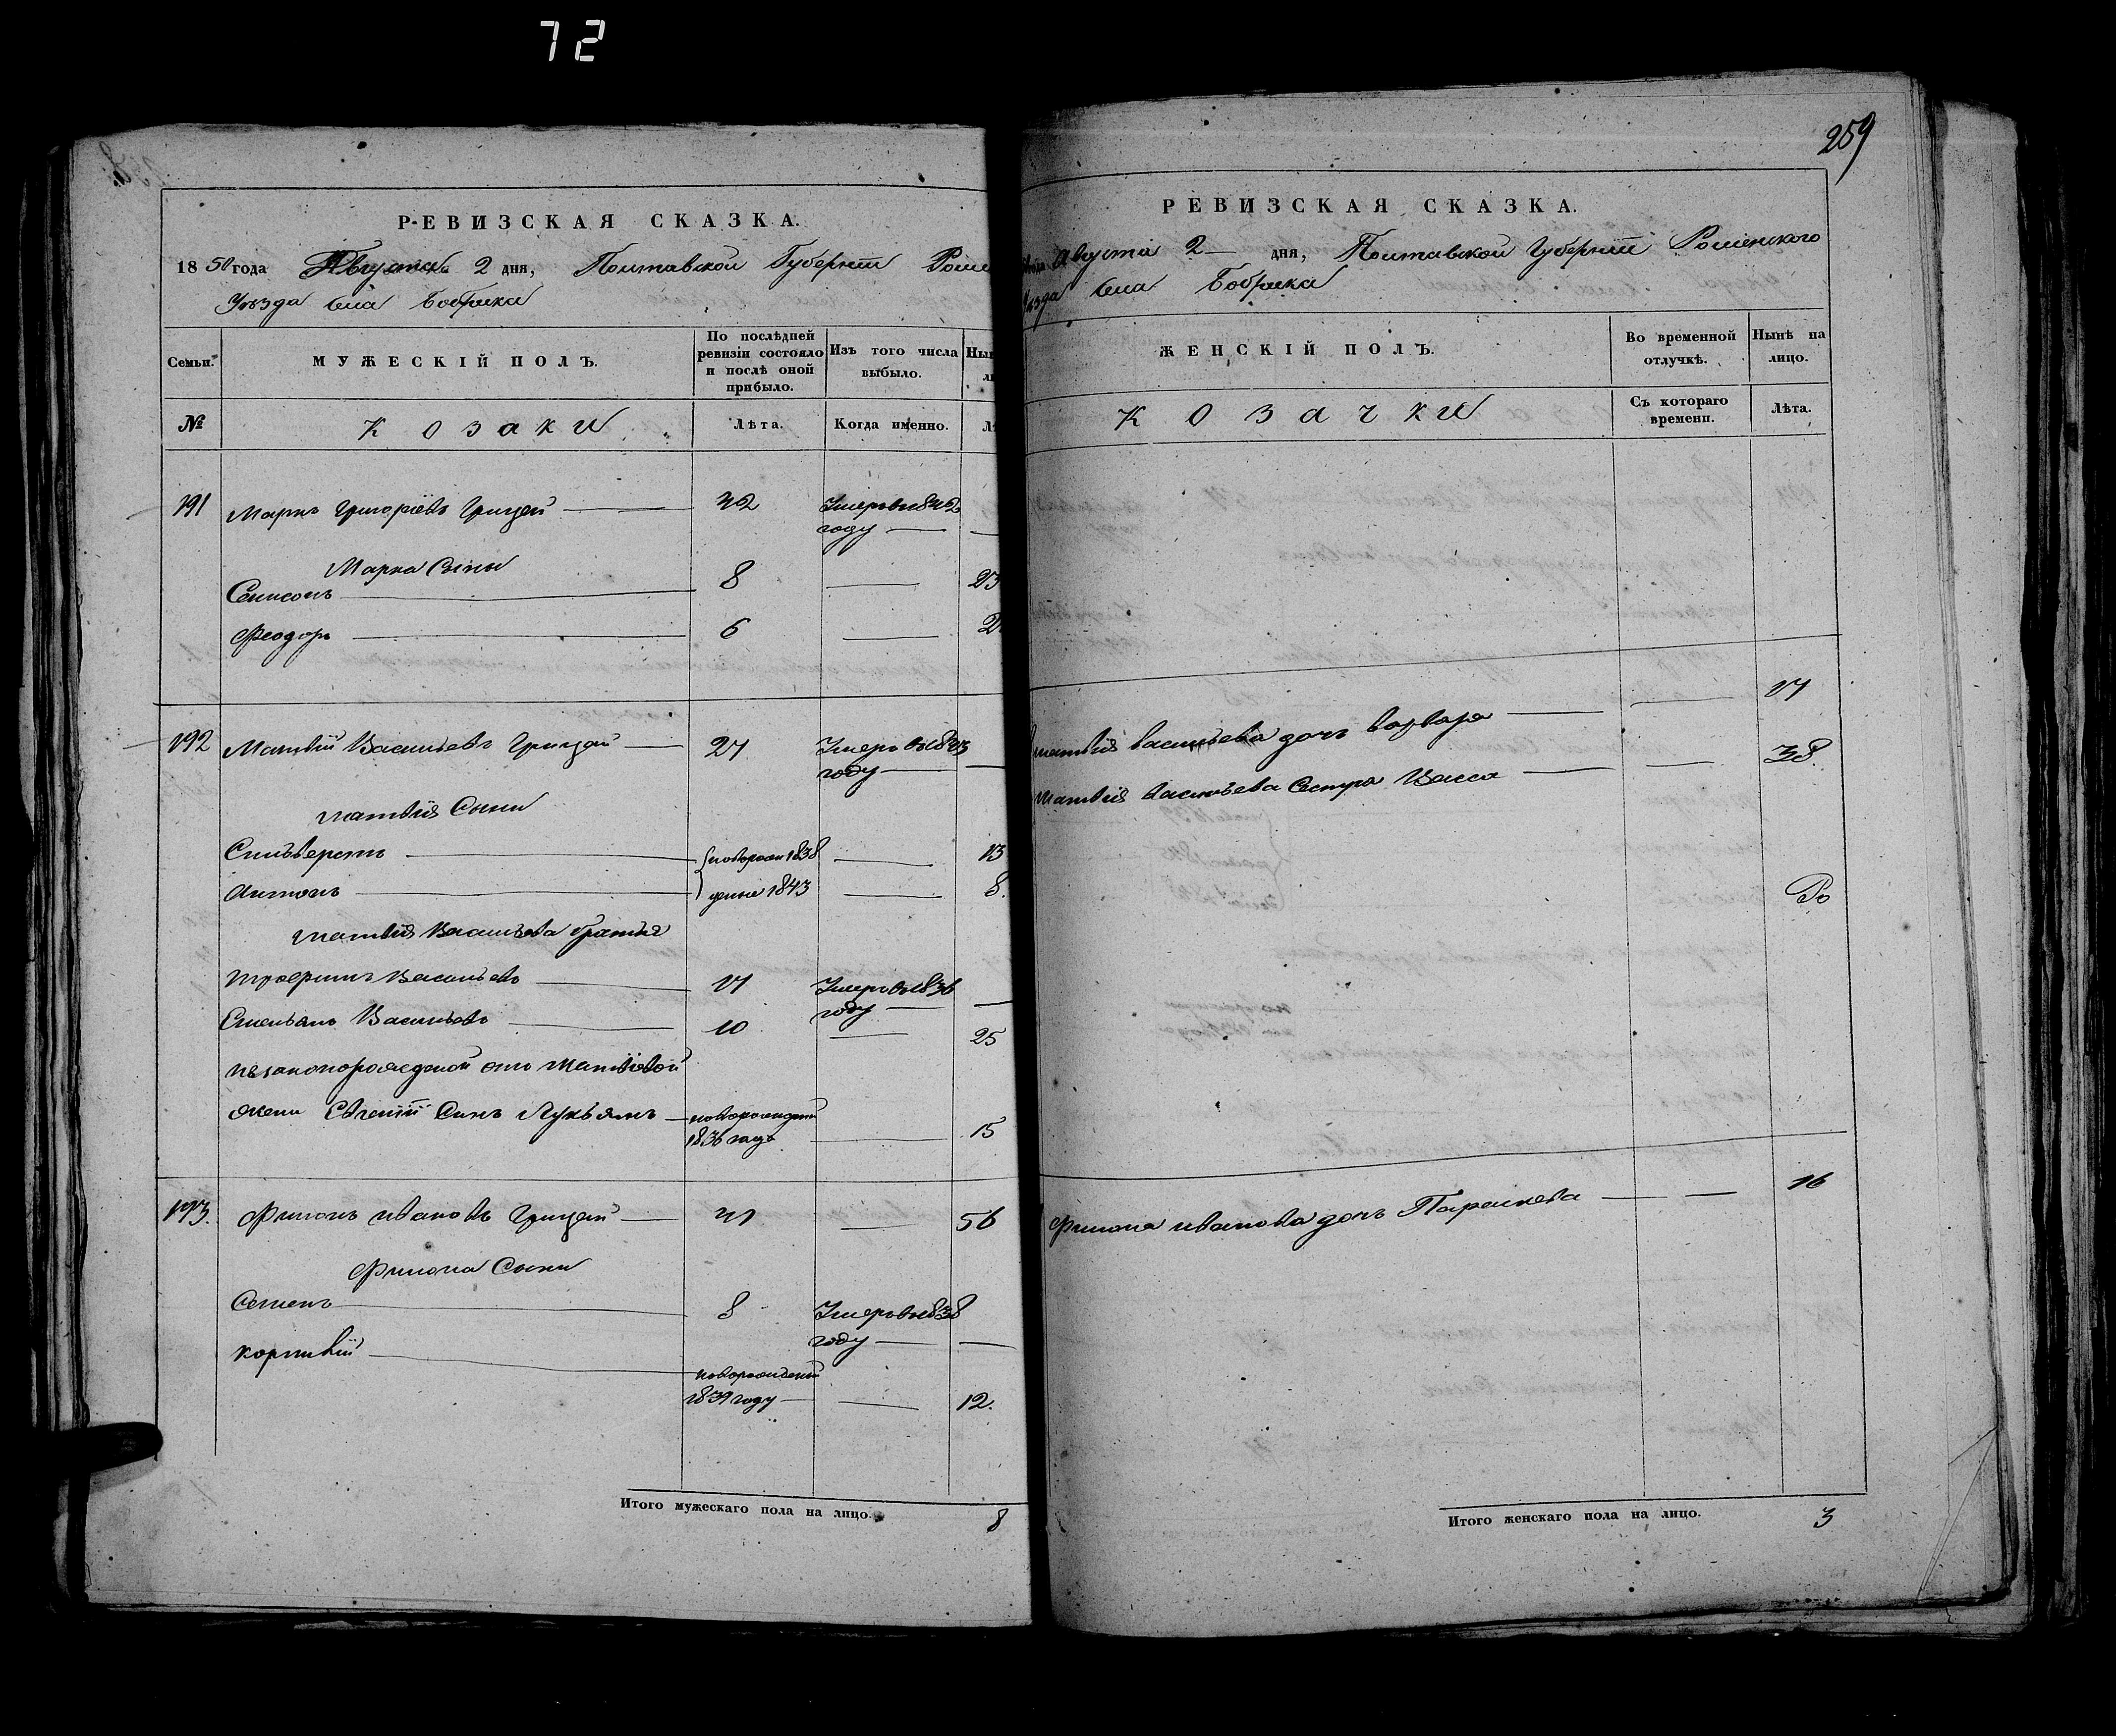 72
РЕВИЗСКАЯ СКАЗКА.
1850 года Августа 2 дня, Полтавской Губерніи Роме
Уѣзда села Бобрика
Семьи.
МУЖЕСКІЙ ПОЛЪ.
По послѣдней ревизіи состояло и послѣ оной прибыло.
Изъ того числа выбыло.
№
Козаки
Лѣта.
Когда именно.
191 Марко Григоріевъ Грицай 42 Умеръ въ 1842
году
Марка Сыны
Самсонъ 8 23
Феодоръ 6 2
192 Матвѣй Васильевъ Грицай 27 Умеръ въ 1843
году
Матвѣя Сыны
Сильверстъ новорож 1838 13
Антонъ деные 1843 8.
Матвѣя Васильева братья
Трофимъ Васильевъ 17 Умеръ въ 1836
году
Емельянъ Васильевъ 10 25
незаконорожденой отъ Матвіевой
жены Евгеніи Сынъ Лукьянъ новорожденый
1836 года 15
193. Филонъ Ивановъ Грицай 41 56
Филона Сыны
Семенъ 8 Умеръ въ 1838
году
Корнилій новорожденый
1839 году 12.
Итого мужескаго пола на лицо. 8
259
РЕВИЗСКАЯ СКАЗКА.
Августа 2 дня, Полтавской Губерніи Роменского
Уѣзда села Бобрика
ЖЕНСКІЙ ПОЛЪ.
Во временной отлучкѣ.
Нынѣ на лицо.
Козачки
Съ котораго времени.
Лѣта.
Матвѣя Васильева дочь Варвара 17
Матвѣя Васильева Сестра Васса 38.
Филона Иванова дочь Параскева 16
Итого женскаго пола на лицо. 3